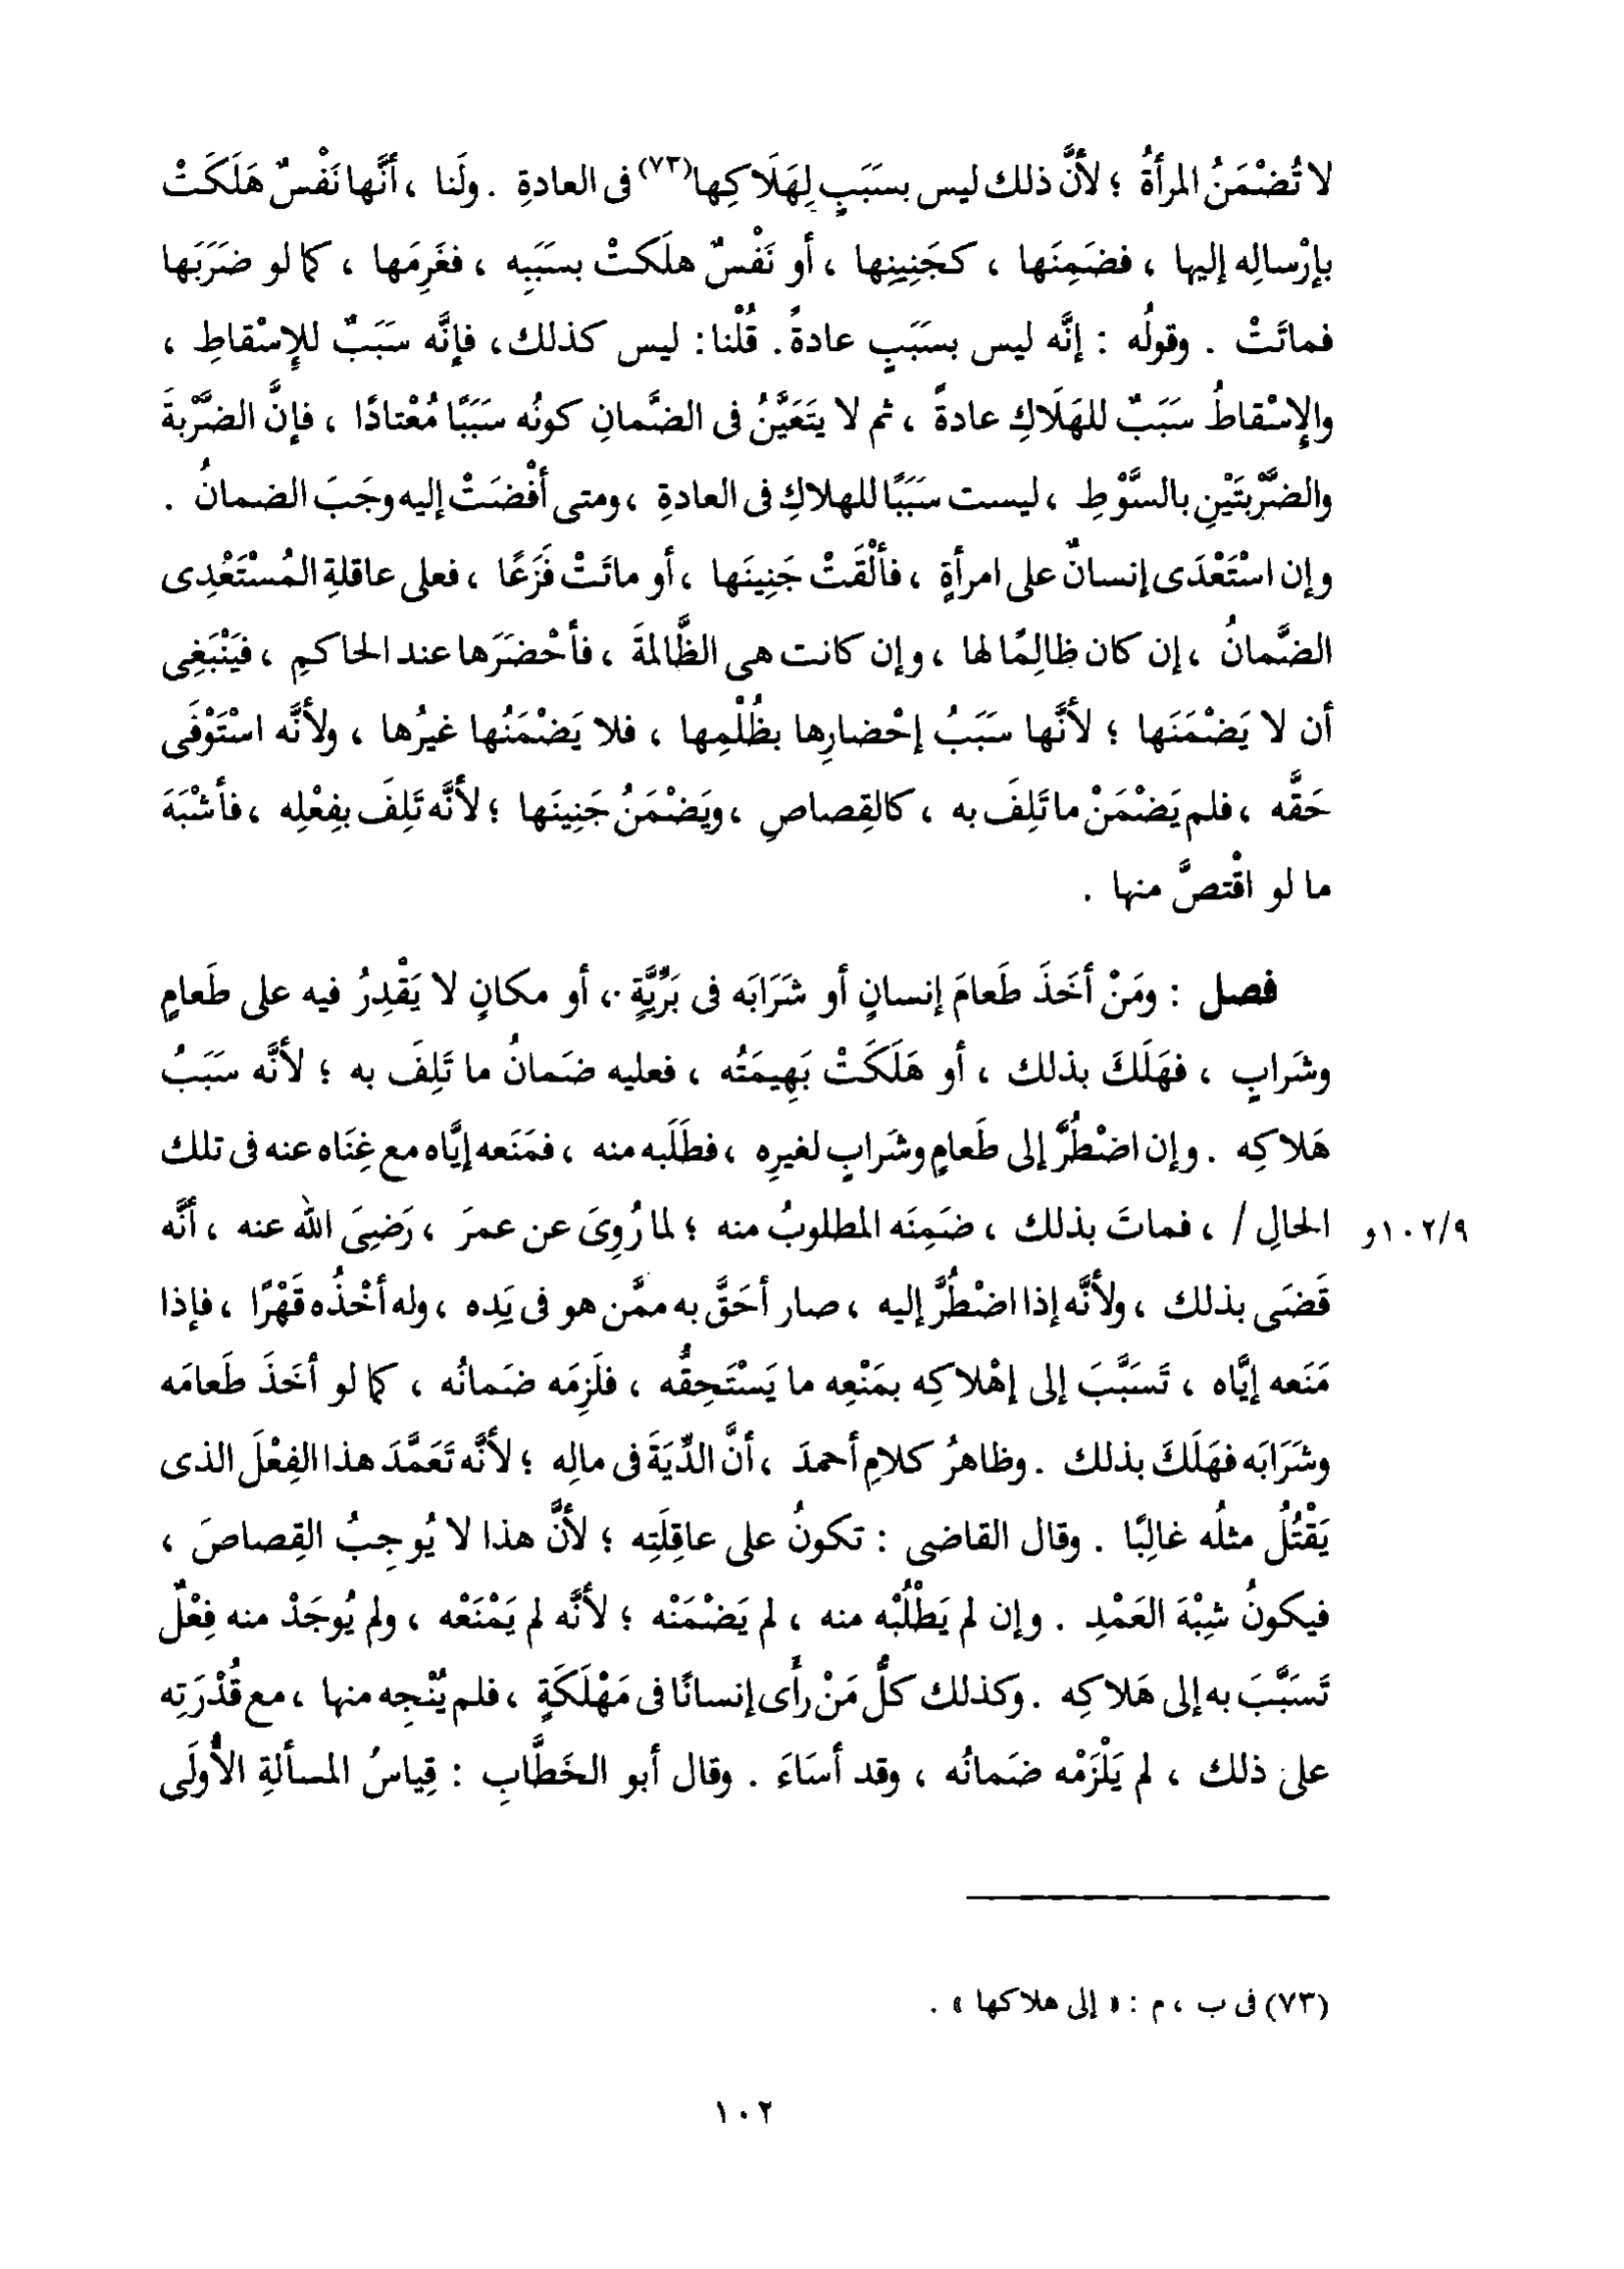 لا تُضْمَنُ المرأةُ ؛ لأنَّ ذلك ليس بسَبَبٍ لِهَلَاكِها(٧٣) فى العادةِ . ولَنا ، أنَّها نَفْسٌ هَلَكَتْ
بإرْسالِه إليها ، فضَمِنَها ، كجَنِينِها ، أو نَفْسٌ هلَكتْ بسَبَبِه ، فغَرِمَها ، كما لو ضَرَبَها
فماتَتْ . وقولُه : إنَّه ليس بسَبَبٍ عادةً . قُلْنا : ليس كذلك ، فإنَّه سَبَبٌ للإِسْقاطِ ،
والإِسْقاطُ سَبَبٌ للهَلَاكِ عادةً ، ثم لا يتَعَيَّنُ فى الضَّمانِ كونُه سَبَبًا مُعْتادًا ، فإنَّ الضَّرْبةَ
والضَّرْبتَيْنِ بالسَّوْطِ ، ليست سَبَبًا للهلاكِ فى العادةِ ، ومتى أفْضَتْ إليه وجَبَ الضمانُ .
وإن اسْتَعْدَى إنسانٌ على امرأةٍ ، فألْقَتْ جَنِينَها ، أو ماتَتْ فَزَعًا ، فعلى عاقلةِ المُسْتَعْدِى
الضَّمانُ ، إن كان ظالِمًا لها ، وإن كانت هى الظَّالمةَ ، فأحْضَرَها عند الحاكمِ ، فيَنْبَغِى
أن لا يَضْمَنَها ؛ لأنَّها سَبَبُ إحْضارِها بظُلْمِها ، فلا يَضْمَنُها غيرُها ، ولأنَّه اسْتَوْفَى
حَقَّه ، فلم يَضْمَنْ ما تَلِفَ به ، كالقِصاصِ ، ويَضْمَنُ جَنِينَها ؛ لأنَّه تَلِفَ بفِعْلِه ، فأشْبَهَ
ما لو اقْتصَّ منها .
فصل : ومَنْ أخَذَ طَعامَ إنسانٍ أو شَرَابَه فى بَرِّيَّةٍ ، أو مكانٍ لا يَقْدِرُ فيه على طَعامٍ
وشَرابٍ ، فهَلَكَ بذلك ، أو هَلَكَتْ بَهِيمَتُه ، فعليه ضَمانُ ما تَلِفَ به ؛ لأنَّه سَبَبُ
هَلاكِه . وإن اضْطُرَّ إلى طَعامٍ وشَرابٍ لغيرِه ، فطَلَبه منه ، فمَنَعه إيَّاه مع غِنَاه عنه فى تلك
الحالِ / ، فماتَ بذلك ، ضَمِنَه المطلوبُ منه ؛ لما رُوِىَ عن عمرَ ، رَضِىَ الله عنه ، أنَّه
١٠٢/٩و
قَضَى بذلك ، ولأنَّه إذا اضْطُرَّ إليه ، صار أحَقَّ به ممَّن هو فى يَدِه ، وله أخْذُه قَهْرًا ، فإذا
مَنَعه إيَّاه ، تَسَبَّبَ إلى إهْلاكِه بمَنْعِه ما يَسْتَحِقُّه ، فلَزِمَه ضَمانُه ، كما لو أخَذَ طَعامَه
وشَرَابَه فهَلَكَ بذلك . وظاهرُ كلامِ أحمدَ ، أنَّ الدِّيَةَ فى مالِه ؛ لأنَّه تَعَمَّدَ هذا الفِعْلَ الذى
يَقْتُلُ مثلُه غالِبًا . وقال القاضى : تكونُ على عاقِلَتِه ؛ لأنَّ هذا لا يُوجِبُ القِصاصَ ،
فيكونُ شِبْهَ العَمْدِ . وإن لم يَطْلُبْه منه ، لم يَضْمَنْه ؛ لأنَّه لم يَمْنَعْه ، ولم يُوجَدْ منه فِعْلٌ
تَسَبَّبَ به إلى هَلاكِه . وكذلك كلُّ مَنْ رأَى إنسانًا فى مَهْلَكَةٍ ، فلم يُنْجِه منها ، مع قُدْرَتِه
على ذلك ، لم يَلْزَمْه ضَمانُه ، وقد أسَاءَ . وقال أبو الخَطَّابِ : قِياسُ المسألةِ الأُولَى
(٧٣) فى ب ، م : « إلى هلاكها » .
١٠٢